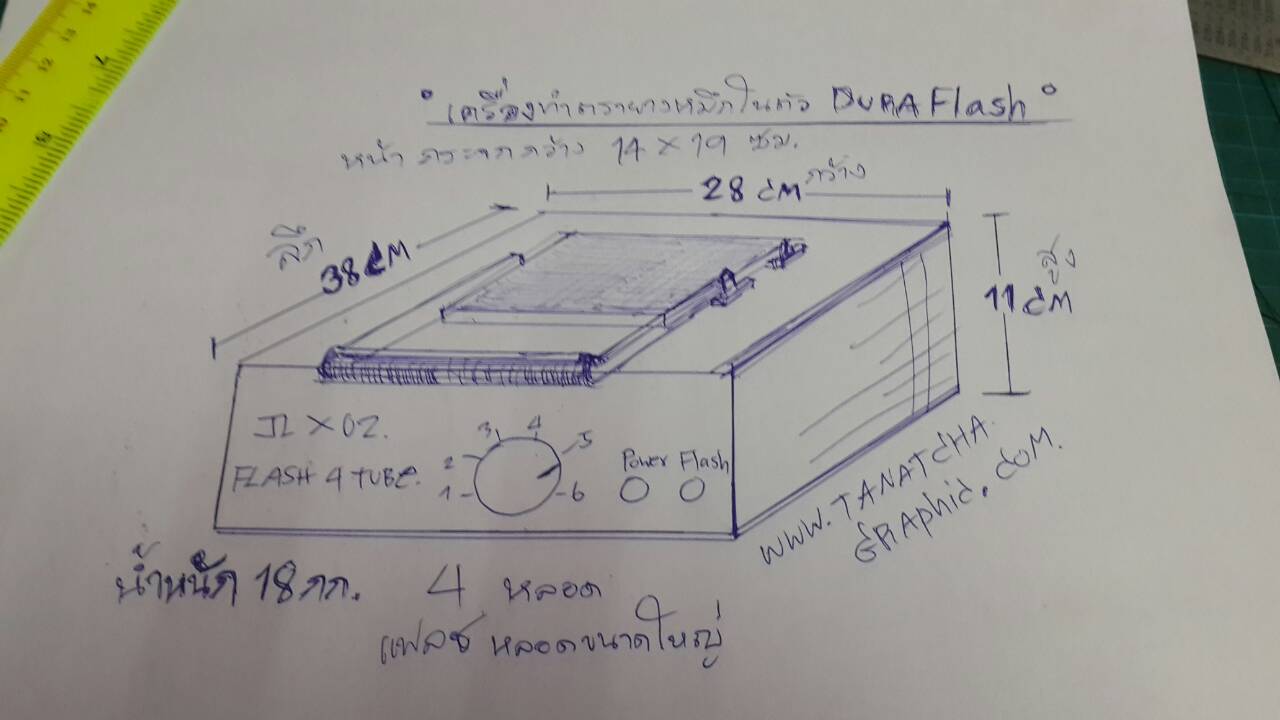 เครื่องทำตรายางหมึกในตัว DURA Flash
หน้ากระจกกว้าง 14 X 19 ซม.
28 CM กว้าง
ลึก
38 CM
สูง
11 CM
JL X 02.
FLASH 4 TUBE.
1 2 3 4 5 6
Power Flash
WWW.TANATCHA
GRAphic.COM.
น้ำหนัก 18 กก. 4 หลอด
แฟลช หลอดขนาดใหญ่